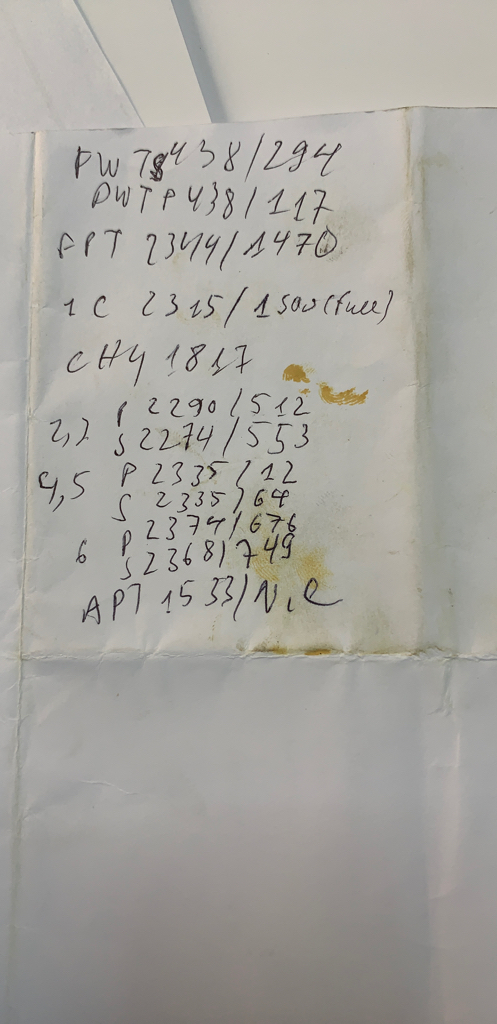 FWTS 438/294
DWTP 438/117
FPT 2344/1470
1C 2315/1500(full)
CH4 1817
P 2290/512
2,3 S 2274/553
4,5 P 2335/12
S 2335/64
P 2374/676
6 S 2368/749
APT 1533/N.C